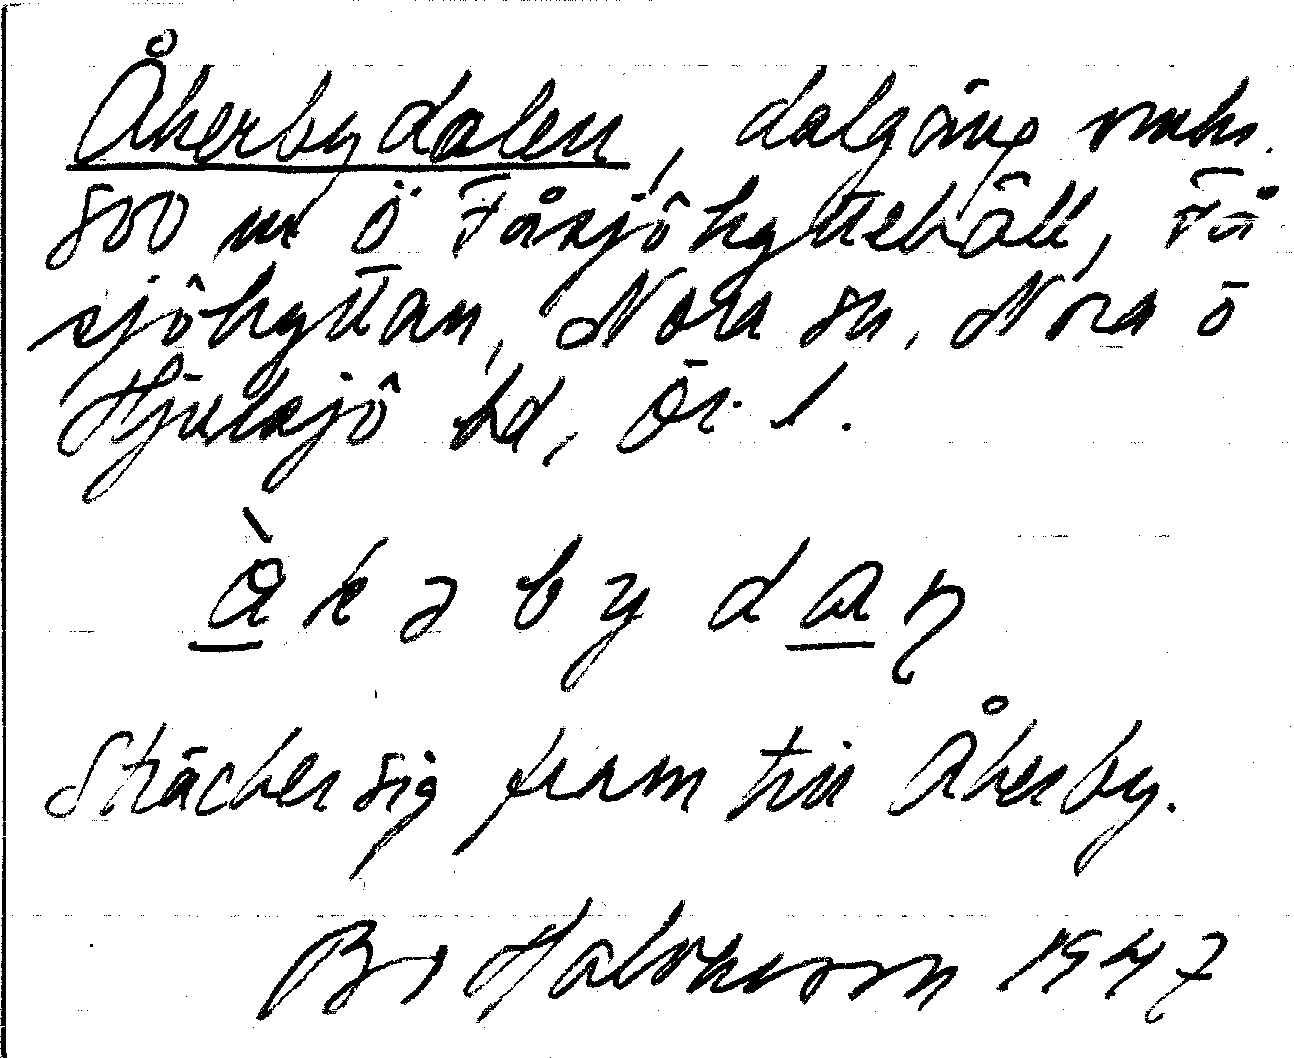 Åkerbydalen, dalgång omkr.
800 m Ö Fåsjöhyttehäll, Få
sjöhyttan, Nora sn, Nora o
Hjulsjö bd, Ör. l.
à k ə b y d a ɳ
Sträcker sig fram till Åkerby.
Bo Halvarsson 1947